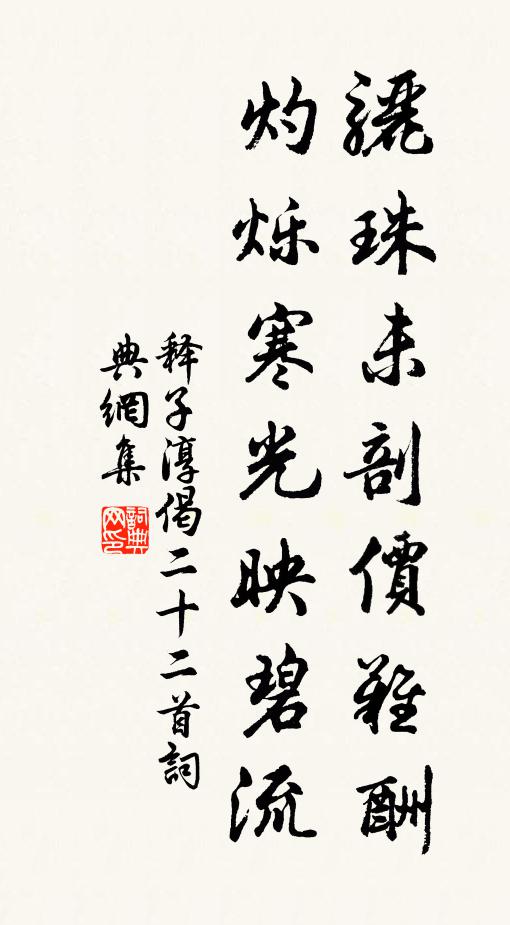 驪珠未剖價難酬
灼烁寒光映碧流
释子淳偈二十二首詞
典網集
詞典
网印